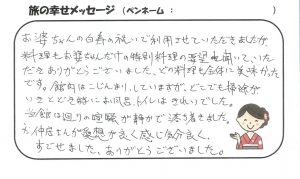 旅の幸せメッセージ (ペンネーム: )
お婆ちゃんの白寿の祝いで利用させていただきましたが
料理もお婆ちゃんだけの特別料理の要望も聞いていた
だきありがとうございました。どの料理も全体に美味かった
です。館内はこじんまりしていますが、どこでも掃除が
いきとどき特にお風呂、トイレはきれいでした。
当館は廻りの喧騒が静かで落ち着きました。
お仲居さんが愛想が良く感じ気分良く
すごせました。ありがとうございました。